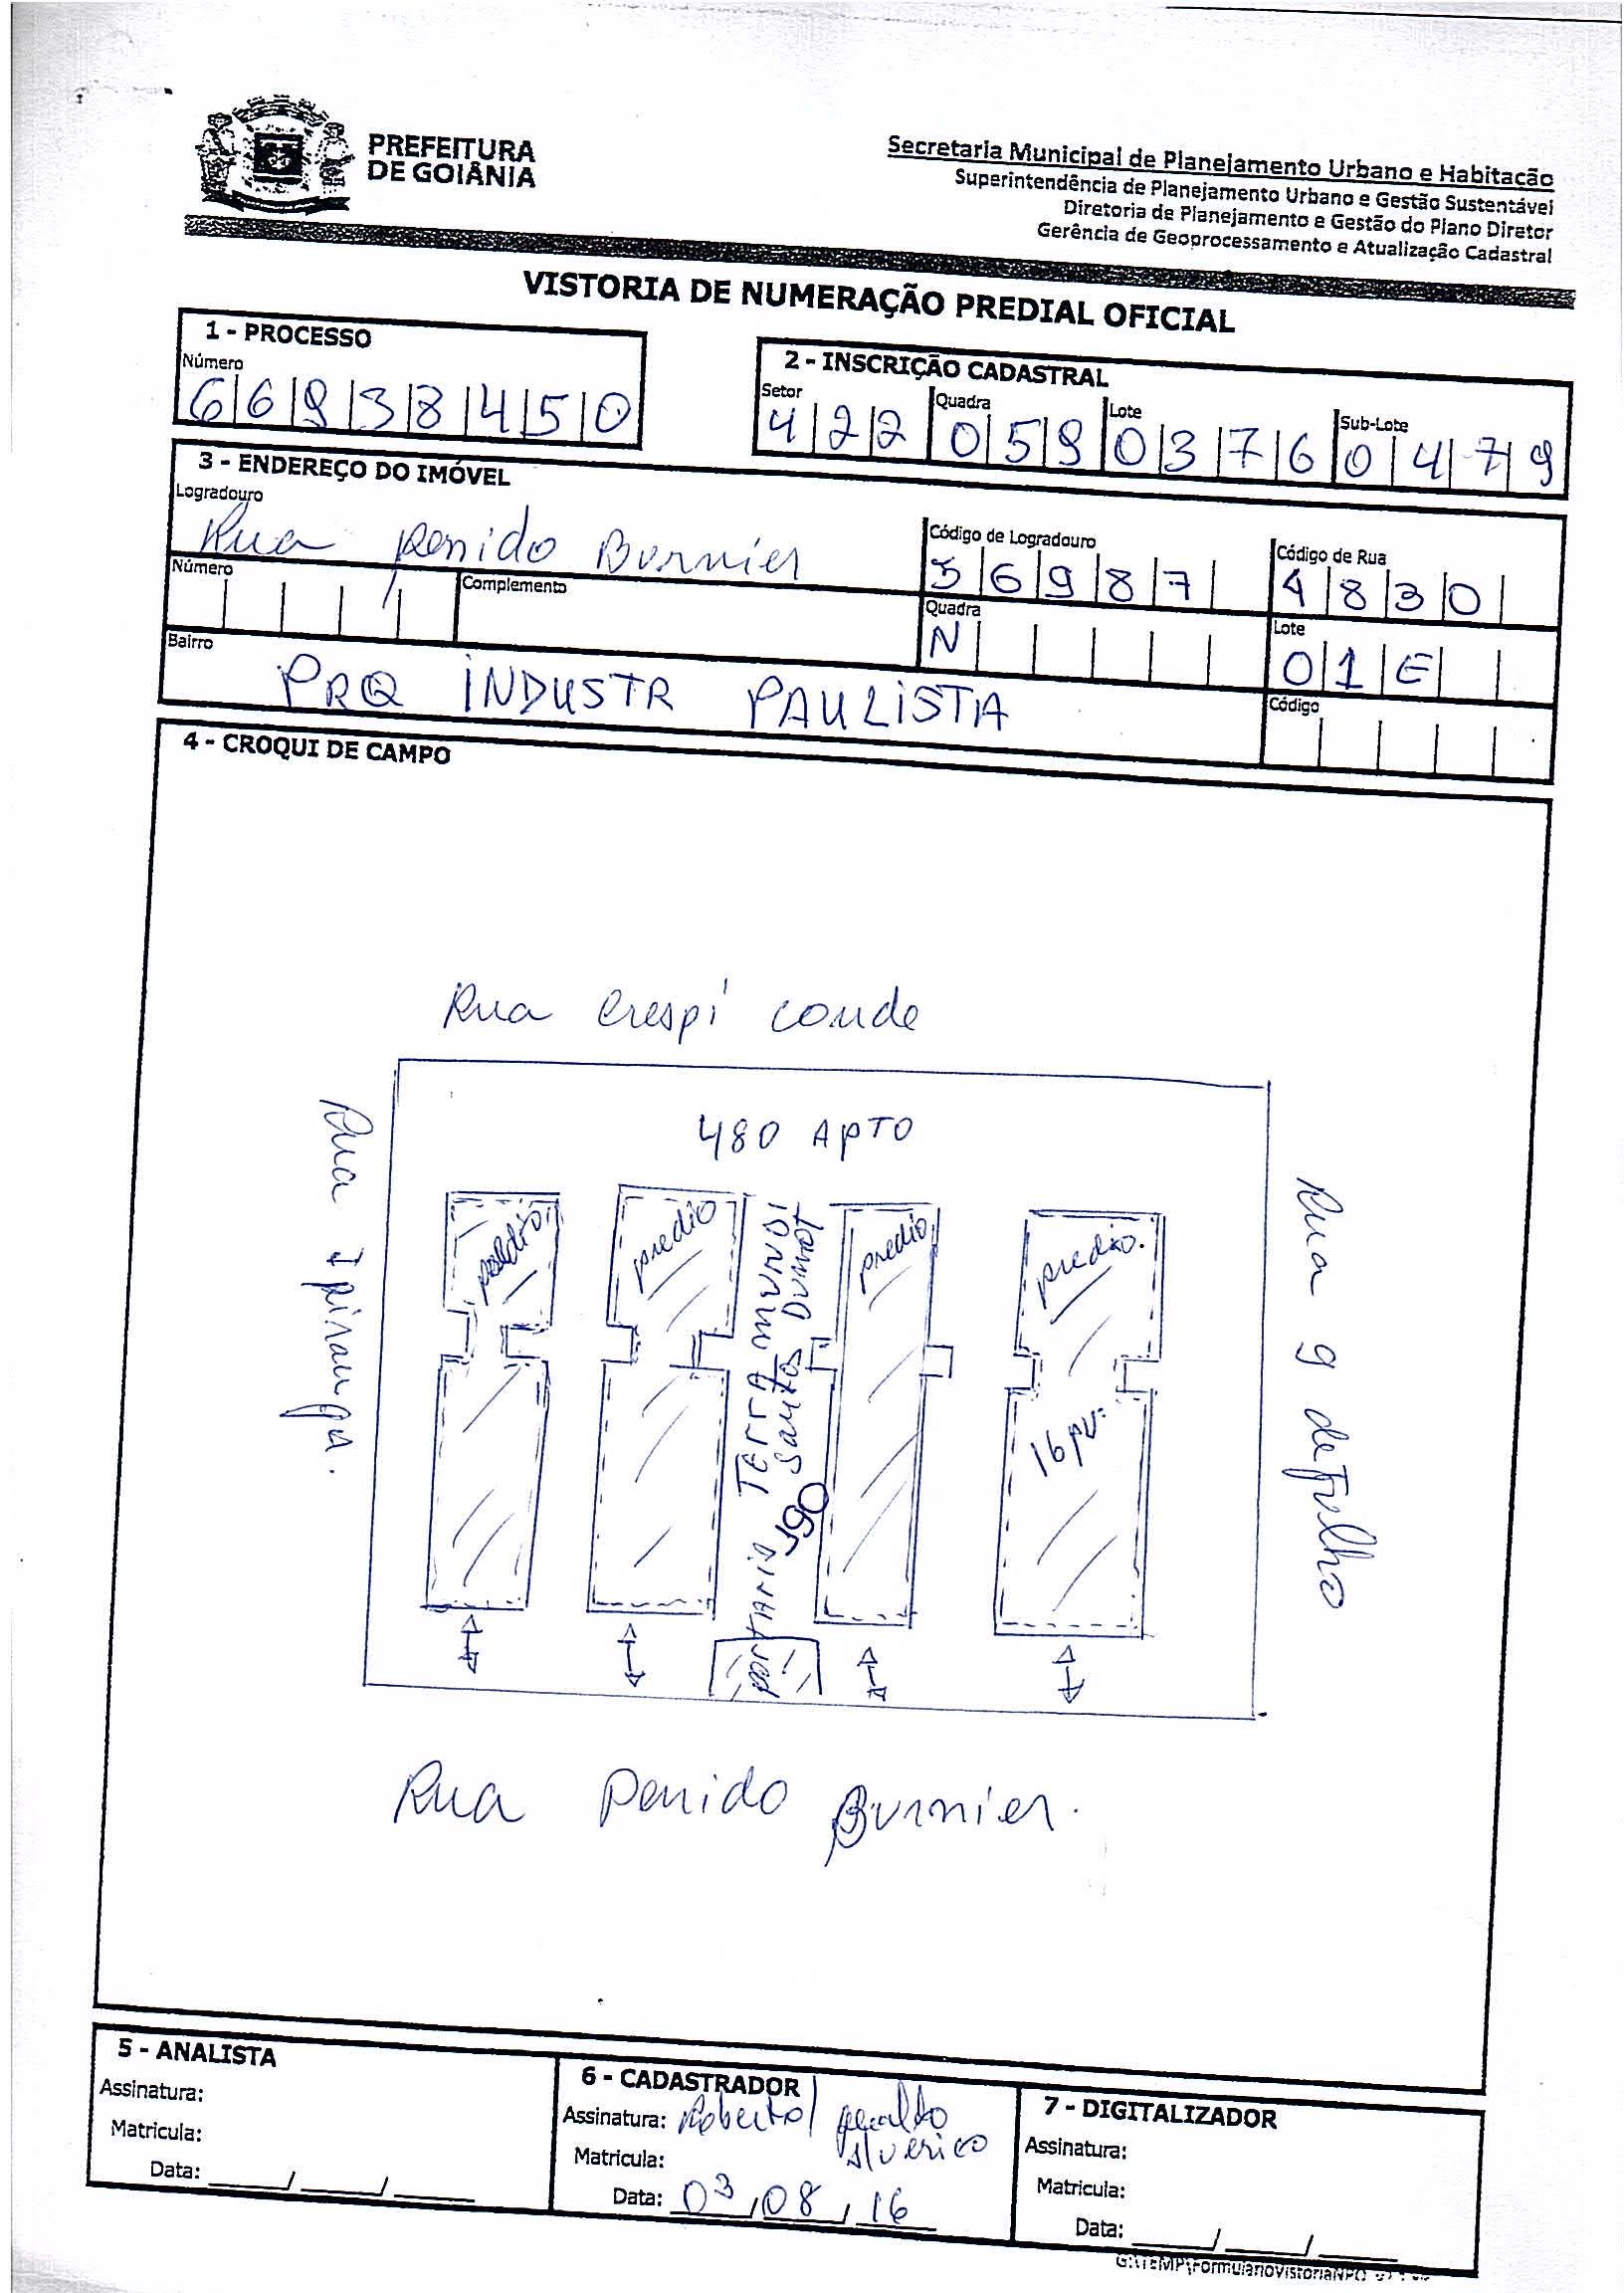 PREFEITURA
DE GOIÂNIA
Secretaria Municipal de Planejamento Urbano e Habitação
Superintendência de Planejamento Urbano e Gestão Sustentável
Diretoria de Planejamento e Gestão do Plano Diretor
Gerência de Geoprocessamento e Atualização Cadastral
VISTORIA DE NUMERAÇÃO PREDIAL OFICIAL
1 - PROCESSO
Número
66938450
2 - INSCRIÇÃO CADASTRAL
Setor Quadra Lote Sub-Lote
422 059 0376 0479
3 - ENDEREÇO DO IMÓVEL
Logradouro Código de Logradouro Código de Rua
Rua penido Burnier 56987 4830
Número Complemento Quadra Lote
N 01E
Bairro Código
PRQ INDUSTR PAULISTA
4 - CROQUI DE CAMPO
Rua Crespi conde
480 APTO
Rua Ipiranga.
predio
predio
TERRA MUNDI
Santos DUMOT
190
predio
predio.
16 pv.
Rua 9 de Julho
portaria
Rua Penido Burnier.
5 - ANALISTA
Assinatura:
Matricula:
Data: ____/____/____
6 - CADASTRADOR
Assinatura: Roberto
Matricula:
Data: 03/08/16
7 - DIGITALIZADOR
Assinatura:
Matricula:
Data: ____/____/____